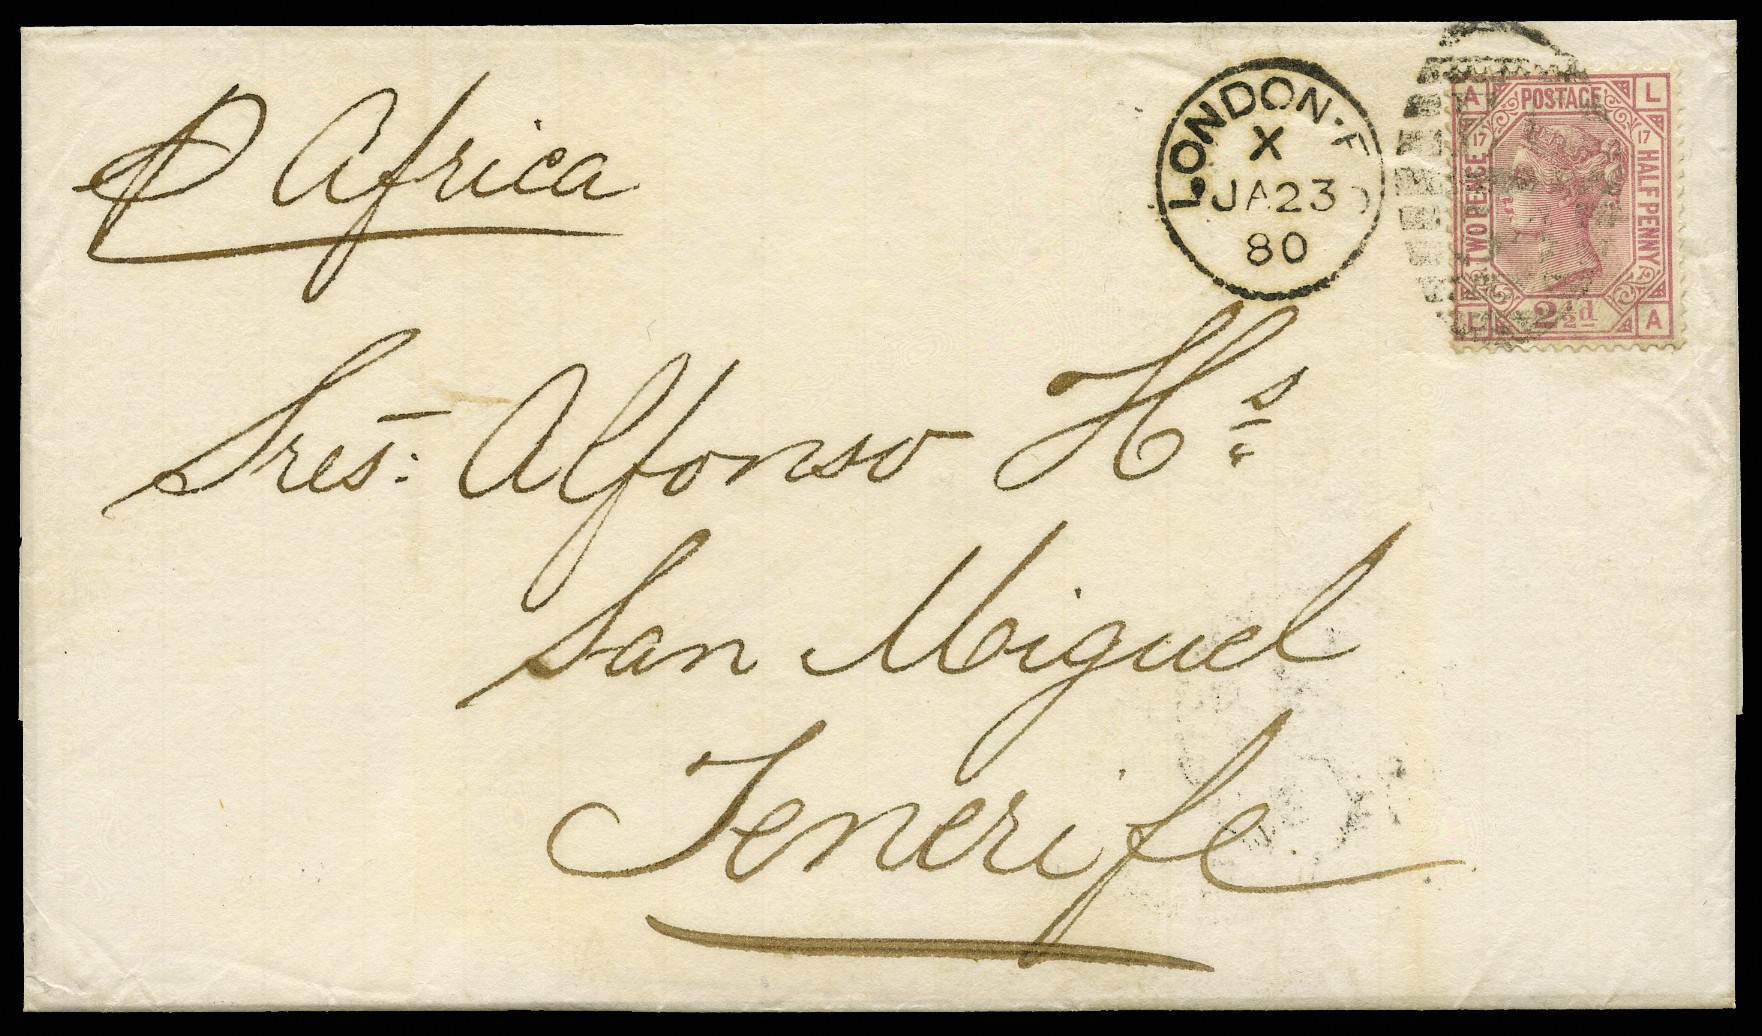 p Africa
LONDON·F
X
JA 23
80
A POSTAGE L
17 17
TWO PENCE
HALFPENNY
L 2½d A
Sres: Alfonso Hs
San Miguel
Tenerife